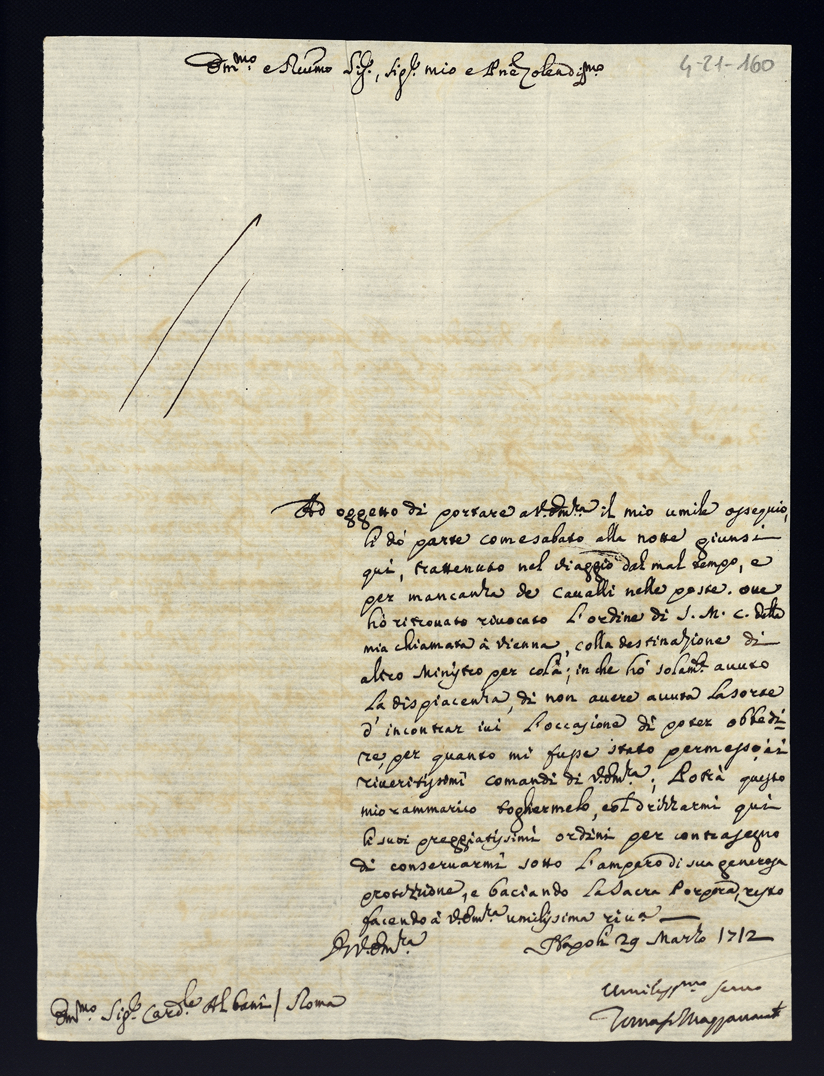 Em.mo e Reu.mo Sig.r, Sig.r mio e Pne Colendis.mo
4-21-160
Ad oggetto di portare a V. Em.za il mio umile ossequio,
li dò parte come sabato alla notte giunsi
qui, trattenuto nel viaggio dal mal tempo, e
per mancanza de Caualli nelle poste. oue
hò ritrouato riuocato l'ordine di S. M. C. della
mia chiamata à Vienna, colla destinazione di
altro Ministro per colà; in che hò solam.te auuto
la dispiacenza, di non auere auuta la sorte
d'incontrar iui l'occasione di poter obbedi=
re, per quanto mi fusse stato permesso, ai
riueritissimi comandi di V. Em.za; Potrà questo
mio rammarico togliermelo, col drizzarmi qui
li suoi preggiatissimi ordini per contrasegno
di conseruarmi sotto l'ampero di sua generosa
protezzione, e baciando la Sacra Porpora, resto
facendo à V. Em.za umilissima riu.a
Di V. Em.za Napoli 29 Marzo 1712
Umiliss.mo seruo
Em.mo Sig.r Card.le Albani / Roma